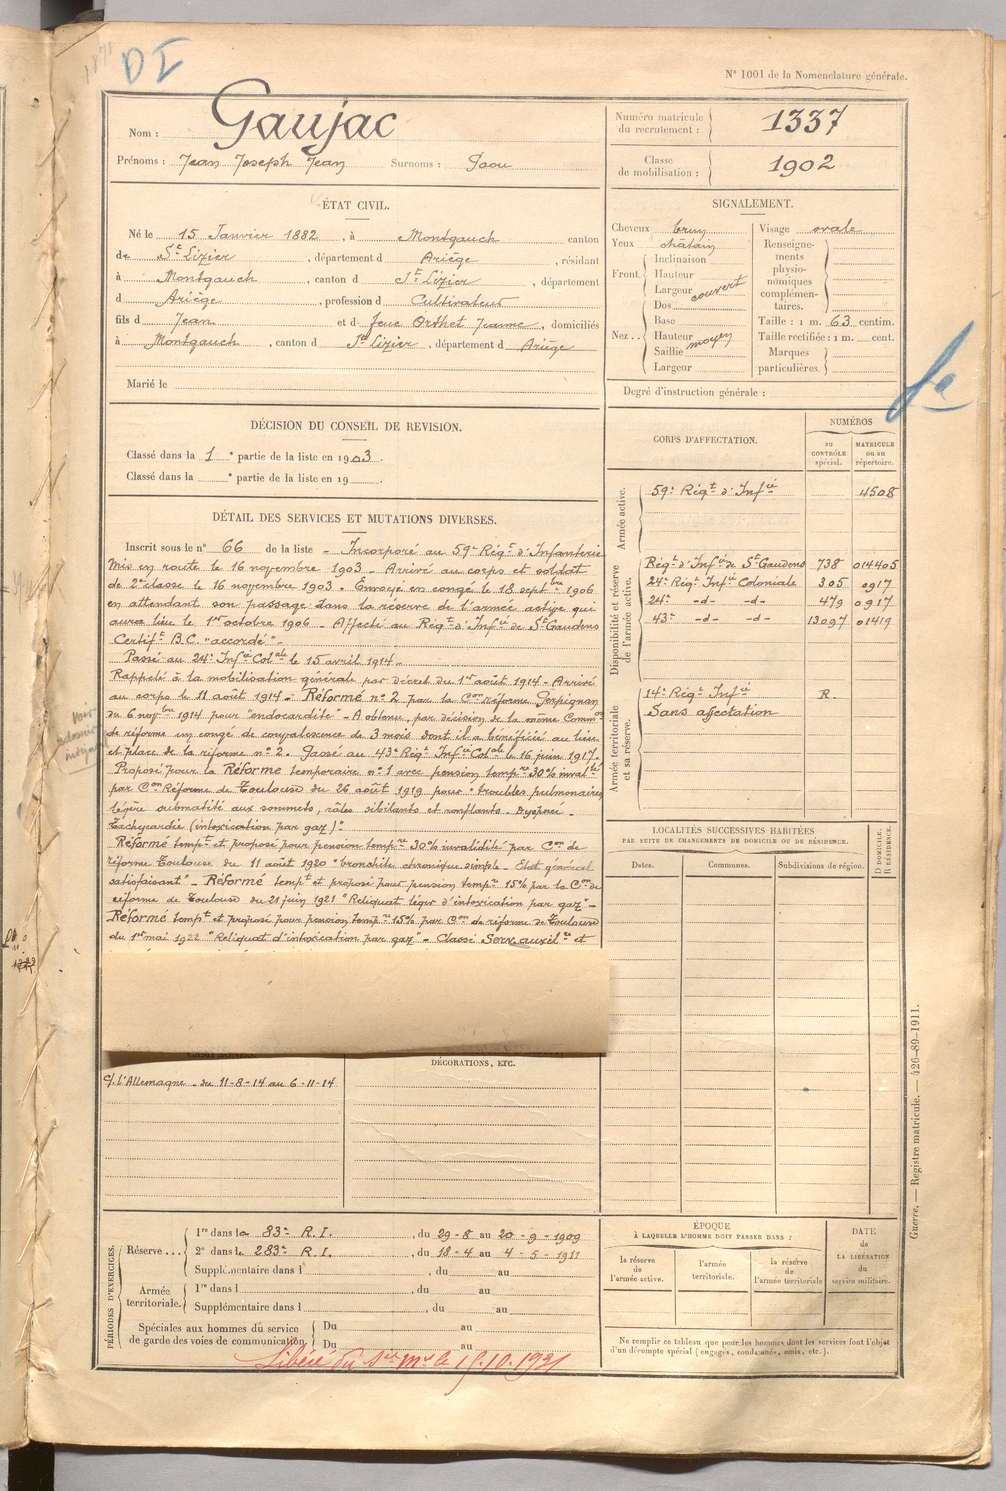 1871
D I
N° 1001 de la Nomenclature générale.
Nom : Gaujac
Prénoms : Jean Joseph Jean Surnoms : Paou
Numéro matricule du recrutement : 1337
Classe de mobilisation : 1902
ÉTAT CIVIL.
Né le 15 Janvier 1882, à Montgauch canton
de St Lizier, département d Ariège, résidant
à Montgauch, canton d St Lizier, département
d Ariège, profession d Cultivateur
fils d Jean et d feue Orthet Jeanne, domiciliés
à Montgauch, canton d St Lizier, département d Ariège
Marié le
SIGNALEMENT.
Cheveux brun
Yeux châtain
Front Inclinaison
Hauteur
Largeur couvert
Nez Dos
Base
Hauteur moyen
Saillie
Largeur
Visage ovale
Renseignements physionomiques complémentaires.
Taille : 1 m. 63 centim.
Taille rectifiée : 1 m. cent.
Marques particulières.
Degré d'instruction générale :
DÉCISION DU CONSEIL DE REVISION.
Classé dans la 1e partie de la liste en 1903.
Classé dans la e partie de la liste en 19 .
CORPS D'AFFECTATION.
NUMÉROS
au CONTRÔLE spécial.
MATRICULE ou au répertoire.
Armée active.
59e Régt d'Infie 4508
Disponibilité et réserve de l'armée active.
Régt d'Infie de St Gaudens 738 014405
24e Régt Infie Coloniale 305 0917
24e -d- -d- 479 0917
43e -d- -d- 13097 01419
Armée territoriale et sa réserve.
14e Régt Infie R.
Sans affectation
DÉTAIL DES SERVICES ET MUTATIONS DIVERSES.
Inscrit sous le n° 66 de la liste - Incorporé au 59e Régt d'Infanterie
Mis en route le 16 novembre 1903 - Arrivé au corps et soldat
de 2e classe le 16 novembre 1903 - Envoyé en congé le 18 septbre 1906
en attendant son passage dans la réserve de l'armée active qui
aura lieu le 1er octobre 1906 - Affecté au Régt d'Infie de St Gaudens
Certift B.C. "accordé" -
Passé au 24e Infie Colale le 15 avril 1914 -
Rappelé à la mobilisation générale par décret du 1er août 1914 - Arrivé
au corps le 11 août 1914 - Réformé n° 2 par la Con réforme Perpignan
du 6 novbre 1914 pour "endocardite" - A obtenu, par décision de la même Common
de réforme un congé de convalescence de 3 mois dont il a bénéficié au lieu
et place de la réforme n° 2. Passé au 43e Régt Infie Colale le 16 juin 1917.
Proposé pour la Réforme temporaire n° 1 avec pension tempre 30% invalité
par Con Réforme de Toulouse du 26 août 1919 pour "troubles pulmonaires
légère submatité aux sommets, râles sibilants et ronflants. Dyspnée -
Tachycardie (intoxication par gaz)".
Réformé tempt et proposé pour pension tempre 30% invalidité par Con de
réforme Toulouse du 11 août 1920 "bronchite chronique simple - Etat général
satisfaisant" - Réformé tempt et proposé pour pension tempre 15% par la Con de
réforme de Toulouse du 21 juin 1921 "Reliquat léger d'intoxication par gaz" -
Réformé tempt et proposé pour pension tempre 15% par Con de réforme de Toulouse
du 1er mai 1922 "Reliquat d'intoxication par gaz" - Classé Serv. auxilre et
LOCALITÉS SUCCESSIVES HABITÉES
PAR SUITE DE CHANGEMENTS DE DOMICILE OU DE RÉSIDENCE.
Dates. Communes. Subdivisions de région.
D DOMICILE. R RÉSIDENCE.
DÉCORATIONS, ETC.
c/ l'Allemagne - du 11-8-14 au 6-11-14
PÉRIODES D'EXERCICES.
Réserve 1re dans le 83e R.I., du 29-8 au 20-9-1909
2e dans le 283e R.I., du 18-4 au 4-5-1911
Supplémentaire dans l , du au
Armée territoriale. 1re dans l , du au
Supplémentaire dans l , du au
Spéciales aux hommes du service de garde des voies de communication. Du au
Du au
Libéré du sce mre le 15.10.1931
ÉPOQUE
À LAQUELLE L'HOMME DOIT PASSER DANS :
la réserve de l'armée active.
l'armée territoriale.
la réserve de l'armée territoriale
DATE de LA LIBÉRATION du service militaire.
Ne remplir ce tableau que pour les hommes dont les services font l'objet
d'un décompte spécial (engagés, condamnés, omis, etc.).
Guerre. — Registre matricule. — 426-89-1911.